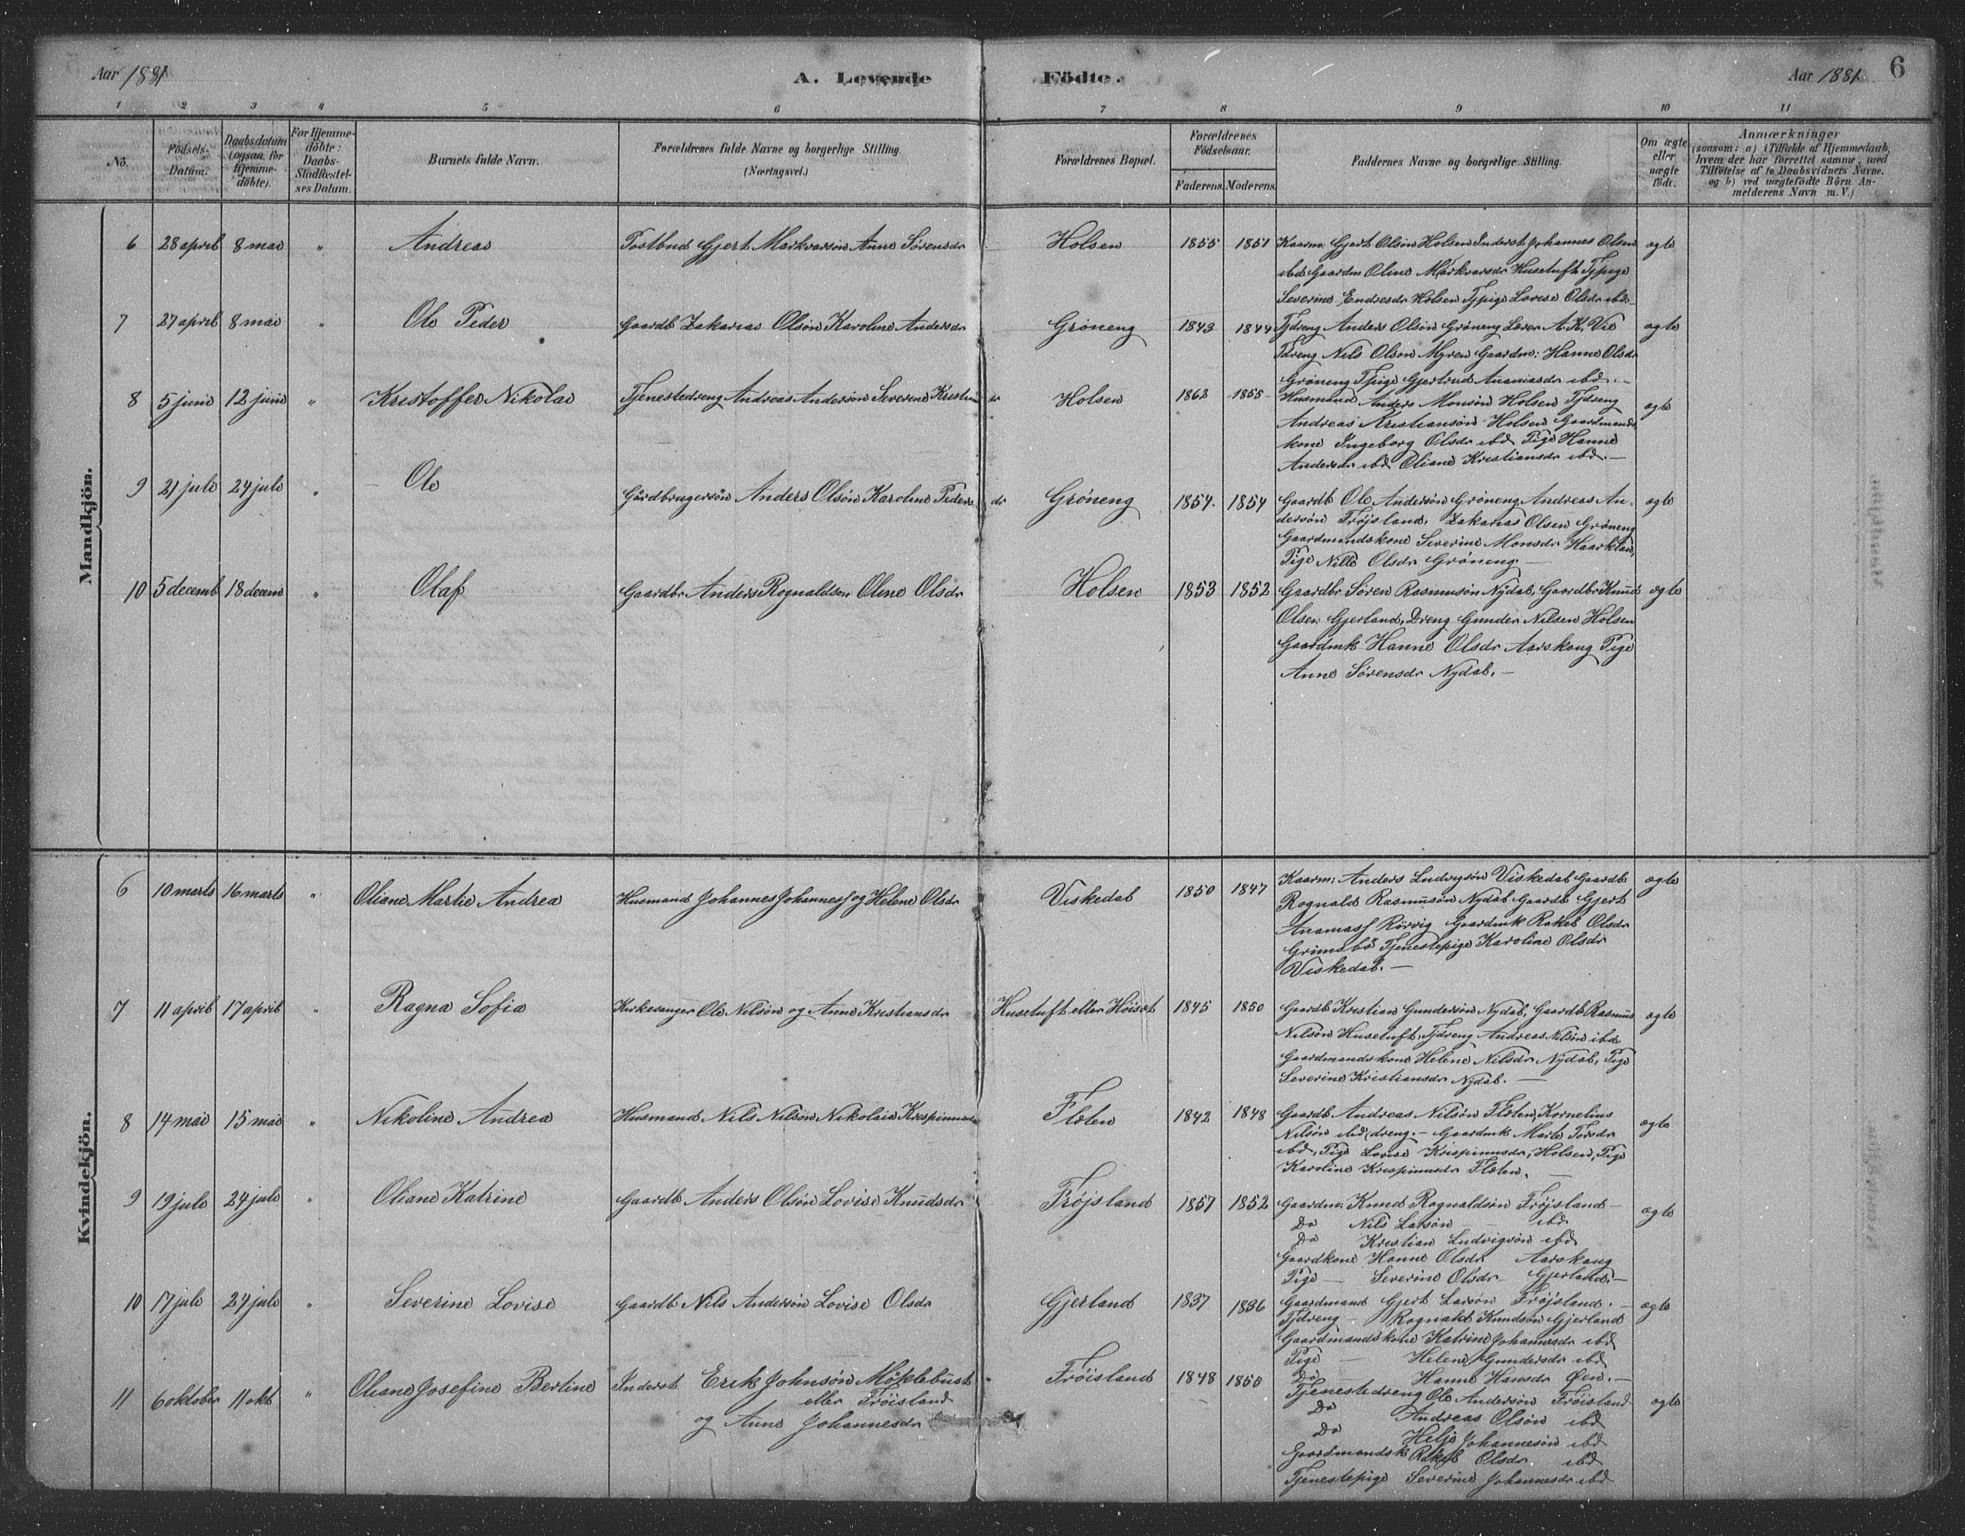 Aar 1881
A. Levende Födte.
Aar 1881. 6
1 2 3 4 5 6 7 8 9 10 11
No. Födsels-Datum. Daabsdatum (ogsaa for Hjemme-döbte). For Hjemme-döbte: Daabs-Stadfæstel-ses Datum. Barnets fulde Navn. Forældrenes fulde Navne og borgerlige Stilling. (Næringsvei.) Forældrenes Bopæl. Forældrenes Födselsaar. Faderens. Moderens. Faddernes Navne og borgerlige Stilling. Om ægte eller uægte födt. Anmærkninger (saasom: a) i Tilfælde af Hjemmedaab, hvem der har forrettet samme, med Tilföielse af to Daabsvidners Navne, og b) ved uægtefödte Börn An-melderens Navn m. V.)
Mandkjön.
6 28 april 8 mai " Andreas Postbud Gjert Markussøn Anne Sørensdr Holsen 1855 1851 Kaarm: Gjert Olsøn Holsen Inderst Johannes Olsen ægte
ibd Gaardm Oline Markusdr Husetuft Tjpige
Severine Endresdr Holsen Tjpige Lovise Olsdr ibd
7 27 april 8 mai " Ole Peder Gaardb Zakarias Olsøn Karoline Andersdr Grøneng 1843 1844 Tjdreng Anders Olsøn Grøneng Lærer A. K. Vie ægte
Tdreng Nils Olsøn Myren Gaardm: Hanne Olsdr
Grøneng Tpige Gjertrud Ananiasdr ibd. —
8 5 juni 12 juni " Kristoffer Nikolai Tjenestedreng Andreas Andersøn Severine Kristiansdr Holsen 1862 1855 Husmand Anders Monsøn Holsen Tjdreng ægte
Andreas Kristiansøn Holsen Gaardmands
kone Ingeborg Olsdr ibd Pige Hanne
Andersdr ibd Oliane Kristiansdr ibd. —
9 21 juli 24 juli " Ole Gårdbrugersøn Anders Olsøn Karoline Pedersdr Grøneng 1854. 1854 Gaardb Ole Andersøn Grøneng Andreas An- ægte
dersøn Frøjsland, Zakarias Olsen Grøneng
Gaardmandskone Severine Monsdr
Pige Nille Olsdr Grøneng —
10 5 decemb 18 decem " Olaf Gaardbr Anders Rognaldsen Oline Olsdr Holsen 1853 1852 Gaardbr Søren Rasmusøn Nydal, Gaardbr Knud ægte
Olsen Gjerland, Dreng Gunder Nilsen Holsen
Gaardmk Hanne Olsdr Aarskoug Pige
Anne Sørensdr Nydal. —
Kvindekjön.
6 10 marts 16 marts " Oliane Martie Andrea Husmand Johannes Johannesf og Helene Olsdr Viskedal 1850 1847 Kaarm: Anders Ludvigsøn Viskedal Gaardb ægte
Rognald Rasmusøn Nydal Gaardb Gjert
Rørvig Gaardmk Rakel Olsdr
Tjenestepige Karoline Olsdr
Viskedal. —
7 11 april 17 april " Ragna Sofia Kirkesanger Ole Nilsøn og Anne Kristiansdr Husetuft eller Höiset 1845 1850 Gaardb Kristian Gundersøn Nydal, Gaardb Rasmus ægte
Nilsøn Husetuft, Tjdreng Andreas Nilsøn ibd
Gaardmandskone Helene Nilsdr Nydal, Pige
Severine Kristiansdr Nydal. —
8 14 mai 15 mai " Nikoline Andrea Husmand Nils Nilsøn Nikolaia Krispinusdr Flæten 1842 1848 Gaardb Andreas Nilsøn Flæten, Kornelius ægte
Nilsøn ibd, dreng. — Gaardmk Marte Torsdr
ibd, Pige Lovise Krispinusdr, Holsen, Pige
Karoline Krispinusdr Flæten. —
9 19 juli 24 juli " Oliane Katrine Gaardb Anders Olsøn Lovise Knudsdr Frøjsland 1857 1852 Gaardm. Knud Rognaldsøn Frøjsland — ægte
Do Nils Larsøn — ibd
Do Kristian Ludvigsøn ibd
Gaardkone Hanne Olsdr Aarskoug
Pige — Severine Olsdr Gjerland. —
10 17 juli 24 juli " Severine Lovise Gaardb Nils Andersøn Lovise Olsdr Gjerland 1837 1836 Gaardmand Gjert Larsøn Frøjsland. — ægte
Tjdreng — Rognald Knudsøn Gjerland
Gaardmandskone Katrine Johannesdr ibd
Pige — Helene Gundersdr ibd
Do — Hanne Hansdr Øen. —
11 6 oktober 11 okt " Oliane Josefine Bertine Inderst Erik Johnsøn Møklebust Frøisland 1848 1850 Tjenestedreng Ole Andersøn Frøisland ægte
eller Frøisland
og Anne Johannesdr
Do Andreas Olsøn ibd
Do Helje Johannesøn ibd
Gaardmandsk Rakel Olsdr ibd
Tjenestepige Severine Johannesdr ibd